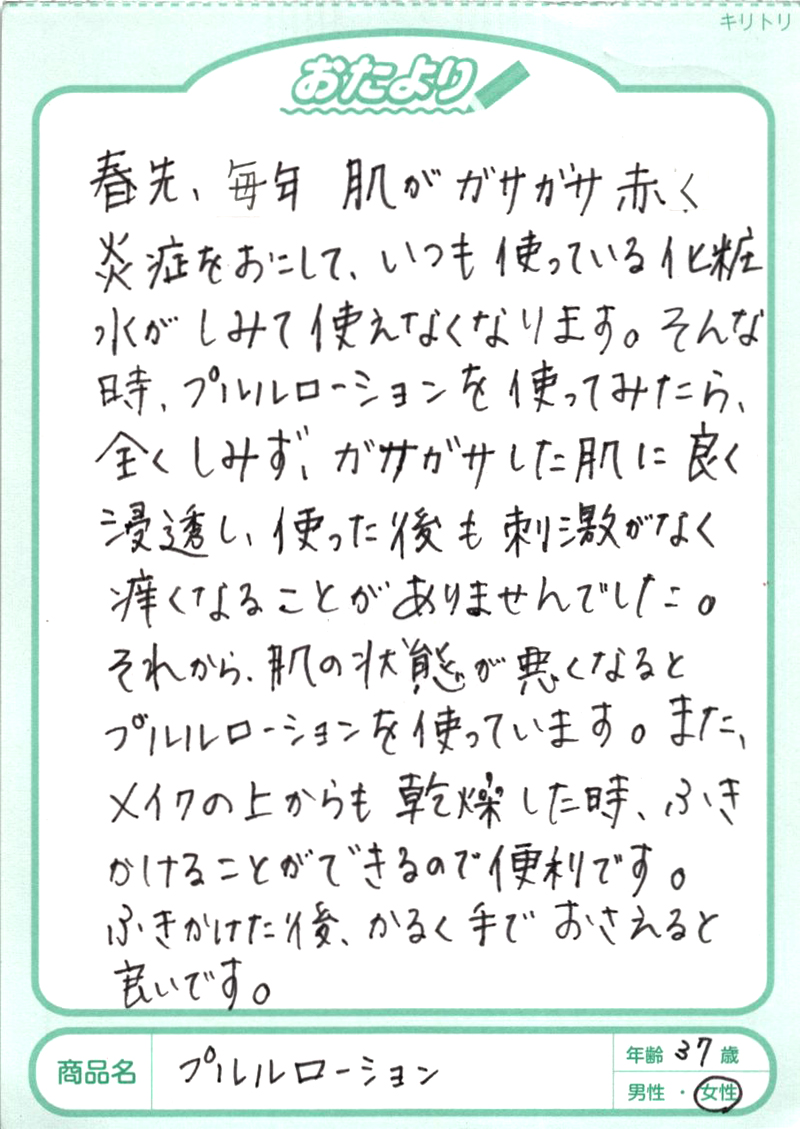 キリトリ
おたより
春先、毎年 肌が ガサガサ 赤く
炎症をおこして、いつも 使っている 化粧
水が しみて 使えなくなります。そんな
時、プルルローションを 使ってみたら、
全く しみず、ガサガサした 肌に 良く
浸透し、使った 後 も 刺激がなく
痒くなることが ありませんでした。
それから、肌の状態が 悪くなると
プルルローションを 使っています。また、
メイクの上からも 乾燥した時、ふき
かけることができるので便利です。
ふきかけた後、かるく 手で おさえると
良いです。
商品名 プルルローション
年齢 37 歳
男性 ・ 女性